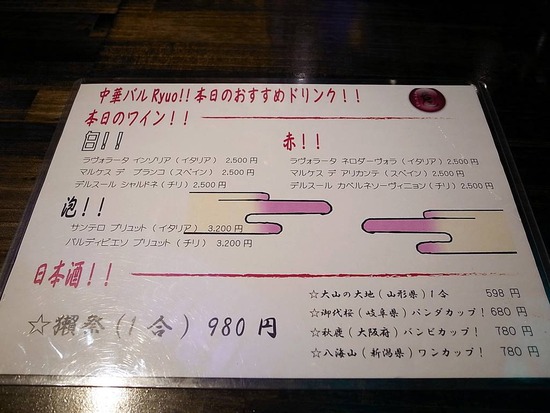 中華バル Ryuo!! 本日のおすすめドリンク！！
本日のワイン！！
白！！
ラヴォラータ インゾリア（イタリア） 2,500 円
マルケス デ ブランコ（スペイン） 2,500 円
デルスール シャルドネ（チリ） 2,500 円
赤！！
ラヴォラータ ネロダーヴォラ（イタリア） 2,500 円
マルケス デ アリカンテ（スペイン） 2,500 円
デルスール カベルネソーヴィニョン（チリ） 2,500 円
泡！！
サンテロ ブリュット（イタリア） 3,200 円
バルディビエソ ブリュット（チリ） 3,200 円
日本酒！！
☆獺祭（1 合） 980 円
☆大山の大地（山形県）1 合 598 円
☆御代桜（岐阜県）パンダカップ！ 680 円
☆秋鹿（大阪府）バンビカップ！ 780 円
☆八海山（新潟県）ワンカップ！ 780 円